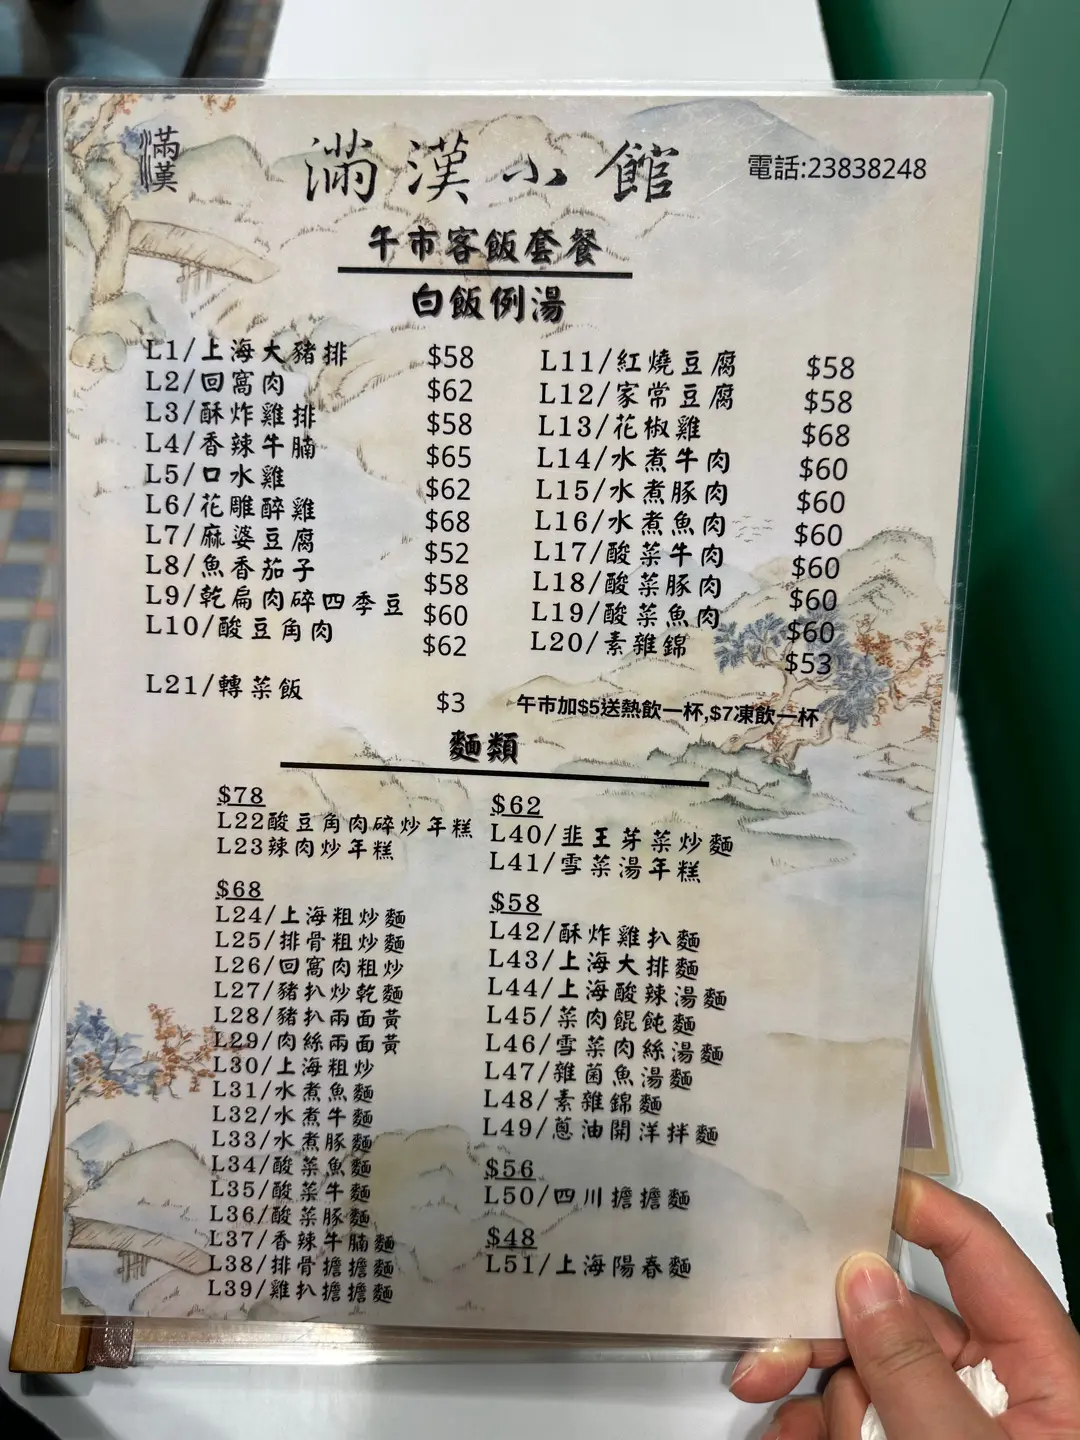 滿漢
滿漢小館
電話:23838248
午市客飯套餐
白飯例湯
L1/上海大豬排 $58
L2/回窩肉 $62
L3/酥炸雞排 $58
L4/香辣牛腩 $65
L5/口水雞 $62
L6/花雕醉雞 $68
L7/麻婆豆腐 $52
L8/魚香茄子 $58
L9/乾扁肉碎四季豆 $60
L10/酸豆角肉 $62
L11/紅燒豆腐 $58
L12/家常豆腐 $58
L13/花椒雞 $68
L14/水煮牛肉 $60
L15/水煮豚肉 $60
L16/水煮魚肉 $60
L17/酸菜牛肉 $60
L18/酸菜豚肉 $60
L19/酸菜魚肉 $60
L20/素雜錦 $53
L21/轉菜飯 $3
午市加$5送熱飲一杯,$7凍飲一杯
麵類
$78
L22酸豆角肉碎炒年糕
L23辣肉炒年糕
$68
L24/上海粗炒麵
L25/排骨粗炒麵
L26/回窩肉粗炒
L27/豬扒炒乾麵
L28/豬扒兩面黃
L29/肉絲兩面黃
L30/上海粗炒
L31/水煮魚麵
L32/水煮牛麵
L33/水煮豚麵
L34/酸菜魚麵
L35/酸菜牛麵
L36/酸菜豚麵
L37/香辣牛腩麵
L38/排骨擔擔麵
L39/雞扒擔擔麵
$62
L40/韭王芽菜炒麵
L41/雪菜湯年糕
$58
L42/酥炸雞扒麵
L43/上海大排麵
L44/上海酸辣湯麵
L45/菜肉餛飩麵
L46/雪菜肉絲湯麵
L47/雜菌魚湯麵
L48/素雜錦麵
L49/蔥油開洋拌麵
$56
L50/四川擔擔麵
$48
L51/上海陽春麵